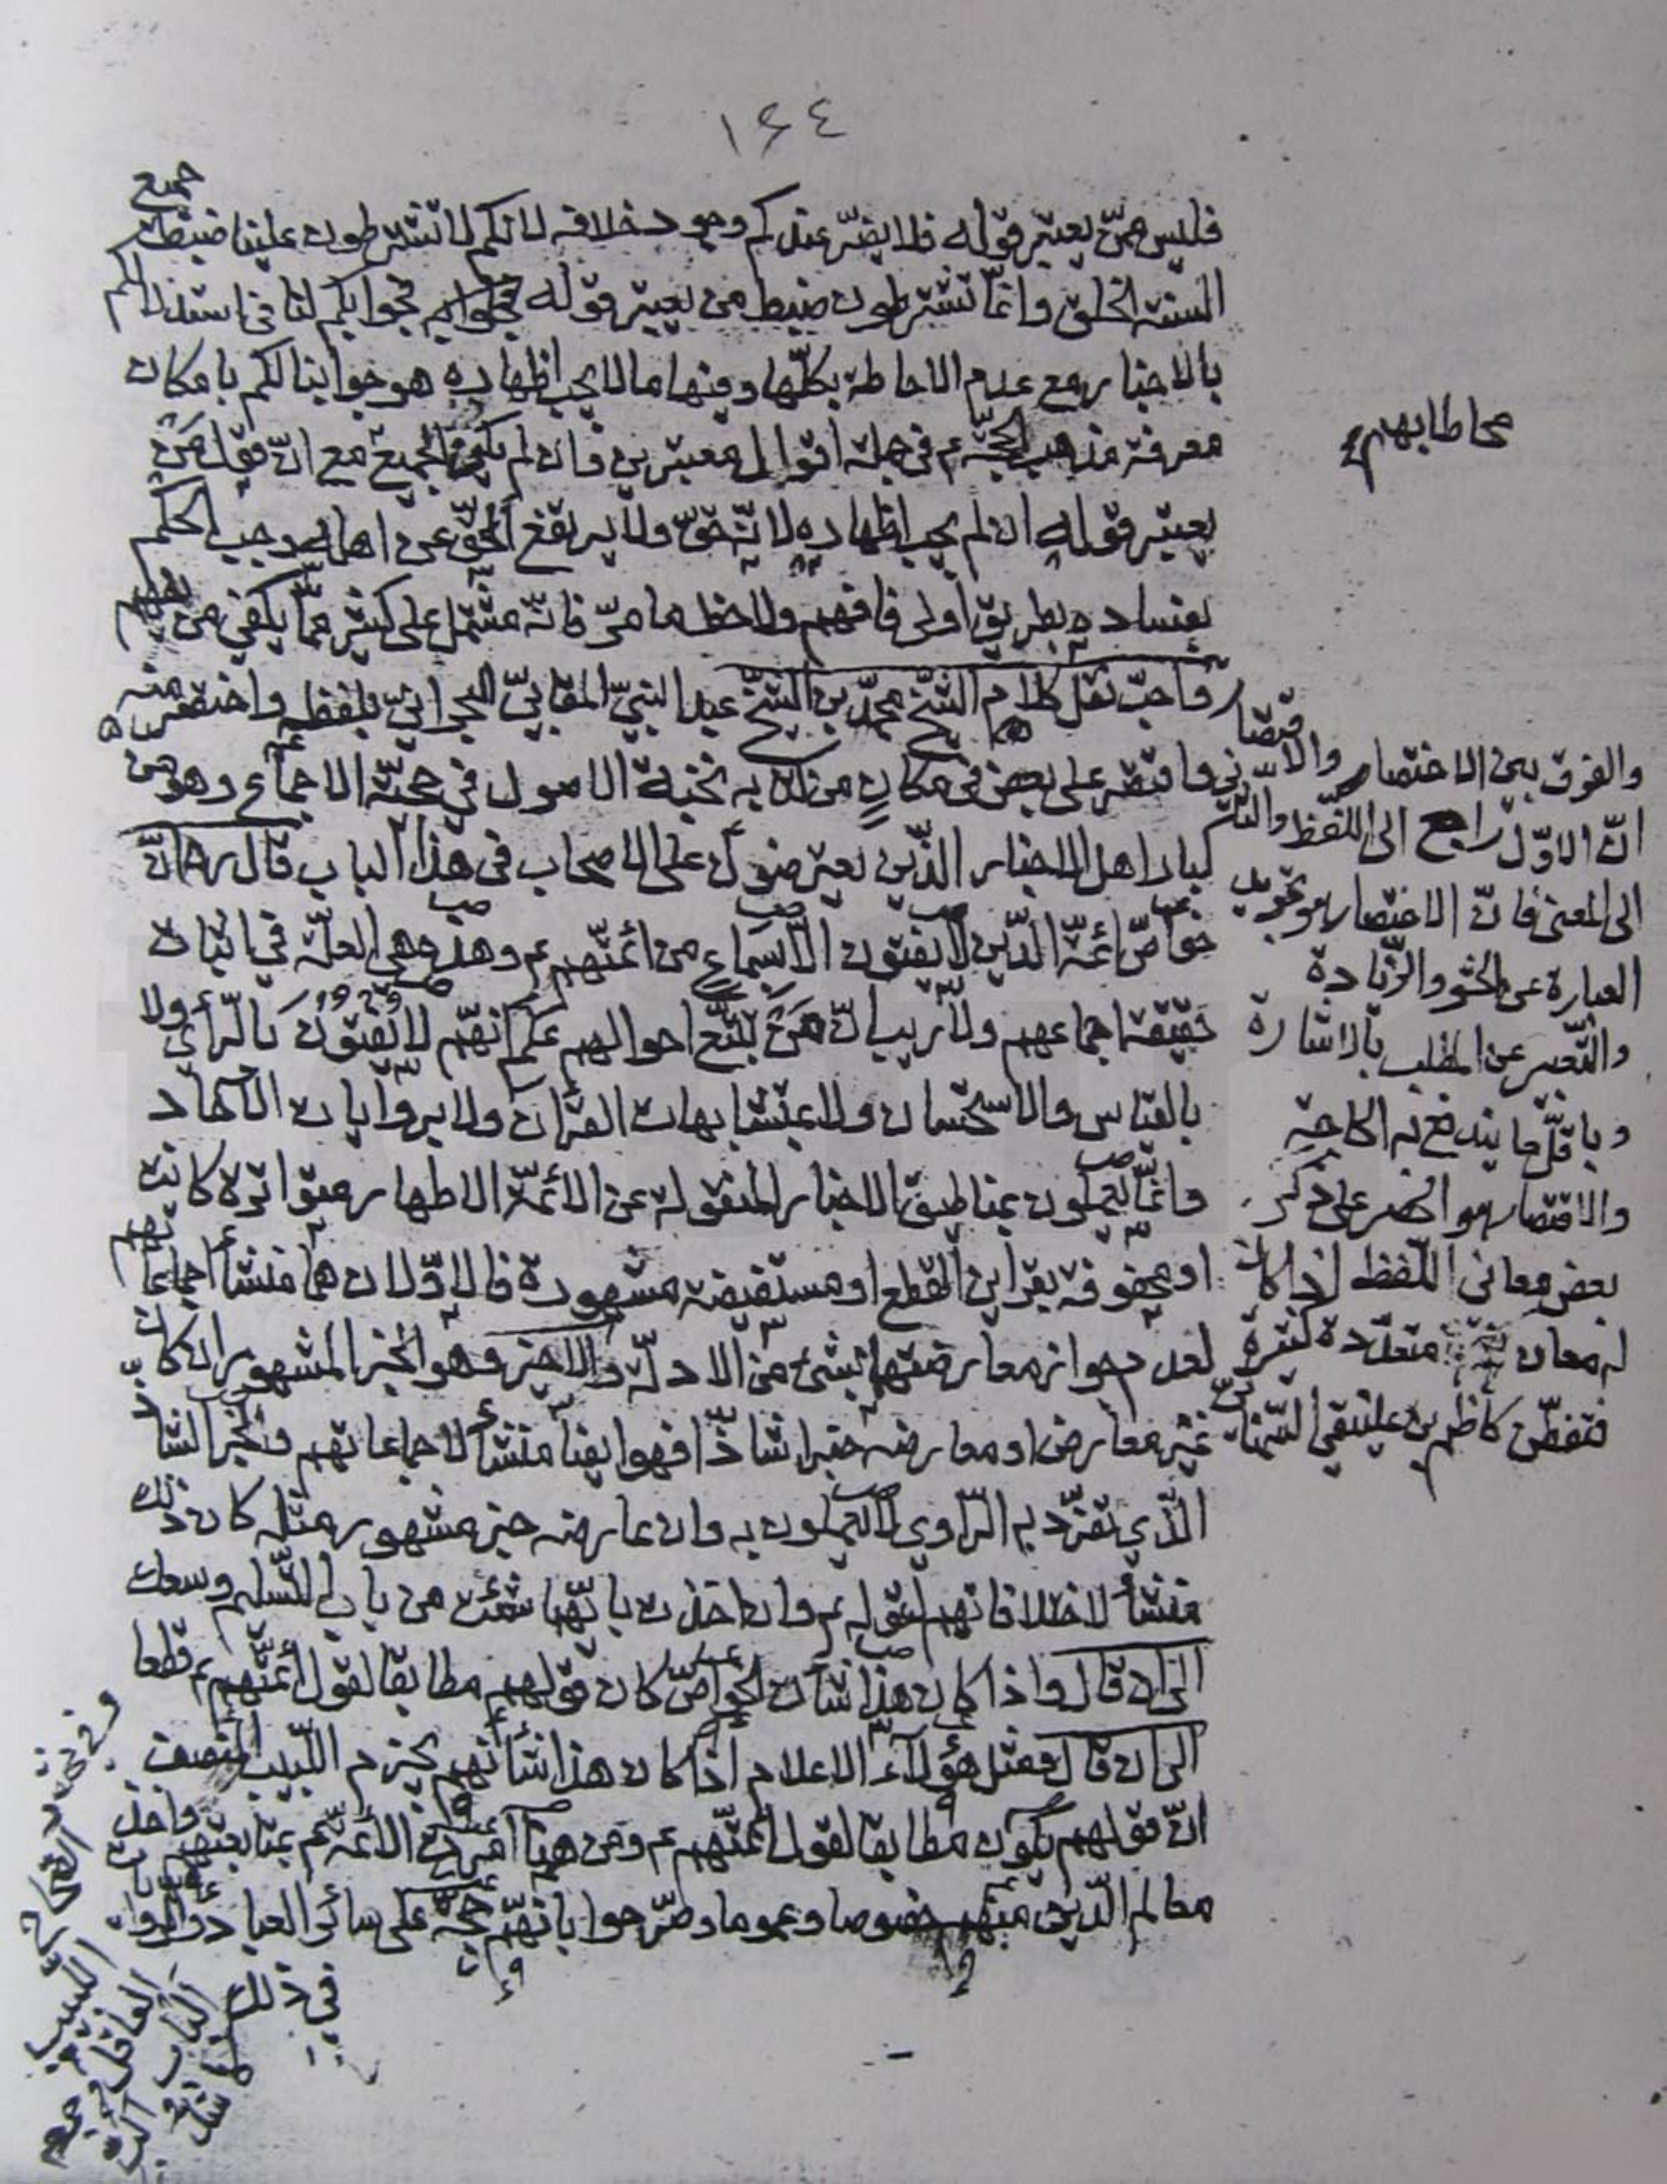 ١٤٤
جميع
فليس ممّن يعتبر قوله فلا يضرّ عندكم وجود خلافه لانكم لا تشترطون علينا ضبط
السنة الخلق وانما تشترطون ضبط من يعتبر قوله فجوابكم لنا في استدلالكم
بالاخبار مع عدم الاحاطة بكلّها ومنها ما لا يجب اظهاره هو جوابنا لكم بامكان
معرفة مذهب الحجّة ع في جملة اقوال معتبرين فان لم يكن الجميع مع انّ قول من
يعتبر قوله ان لم يجب اظهاره لا يتحقق ولا يرتفع الحقّ عن اهله وجب الحكم
بفساده بطريق اولى فافهم ولاحظ ما مرّ فانّه مشتمل على كثير ممّا يكفي من
فاحبّ نقل كلام الشيخ محمّد بن الشيخ عبد النبيّ المقابيّ البحرانيّ بلفظه واختصر منه
فاقتصر على بعض في مكان من كتابه نخبة الاصول في حجيّة الاجماع وهو من
كبار اهل الاخبار الّذين يعترضون على الاصحاب في هذا الباب قال ره انّ
خواصّ ائمّة الّذين لا يفتون الّا بسماع من ائمّتهم ع وهذه هي العلّة في اثبات
حقيقة اجماعهم ولا ريب انّ من تتبّع احوالهم علم انهم لا يفتون بالرأي ولا
بالقياس والاستحسان ولا بمتشابهات القرآن ولا بروايات الآحاد
وانّما يعملون بما طبق الاخبار المنقولة عن الائمّة الاطهار متواترة كانت
او محفوفة بقراين القطع او مستفيضة مشهورة فالاوّلان هما منشأ اجماعا
لعدم جواز معارضتها بشيء من الادلّة والاخير وهو الخبر المشهور ان كان
غير معارض او معارضه خبرا شاذّا فهو ايضا منشأ لاجماعاتهم فالخبر الشا
الّذي تفرّد به الرّاوي لا يعملون به وان عارضه خبر مشهور مثله كان ذلك
منشأ لاختلافاتهم لقوله ع وان اخذت بايّهما شئت من باب التّسليم وسعك
الى ان قال واذا كان هذا شأن الخواصّ كان قولهم مطابقا لقول ائمّتهم ع قطعا
الى ان قال فمثل هؤلاء الاعلام اذا كان هذا شأنهم يجزم اللّبيب المنصف
انّ قولهم يكون مطابقا لقول ائمّتهم ع ومن هنا امرت الائمّة ع بمتابعتهم واخذ
معالم الدّين منهم خصوصا وعموما وصرّحوا بانّهم حجّة على سائر العباد والروا
في ذلك
محاطا بهم
والفرق بين الاختصار والاقتصار
انّ الاوّل راجع الى اللّفظ والثاني
الى المعنى فانّ الاختصار هو تجريد
العبارة عن الحشو والزّيادة
والتّعبير عن المطلب بالاشارة
وباقلّ ما يندفع به الحاجة
والاقتصار هو الحصر على ذكر
بعض معاني اللّفظ اذا كان
له معان متعدّدة كثيرة
فتفطّن كاظم بن علينقي السّمنا